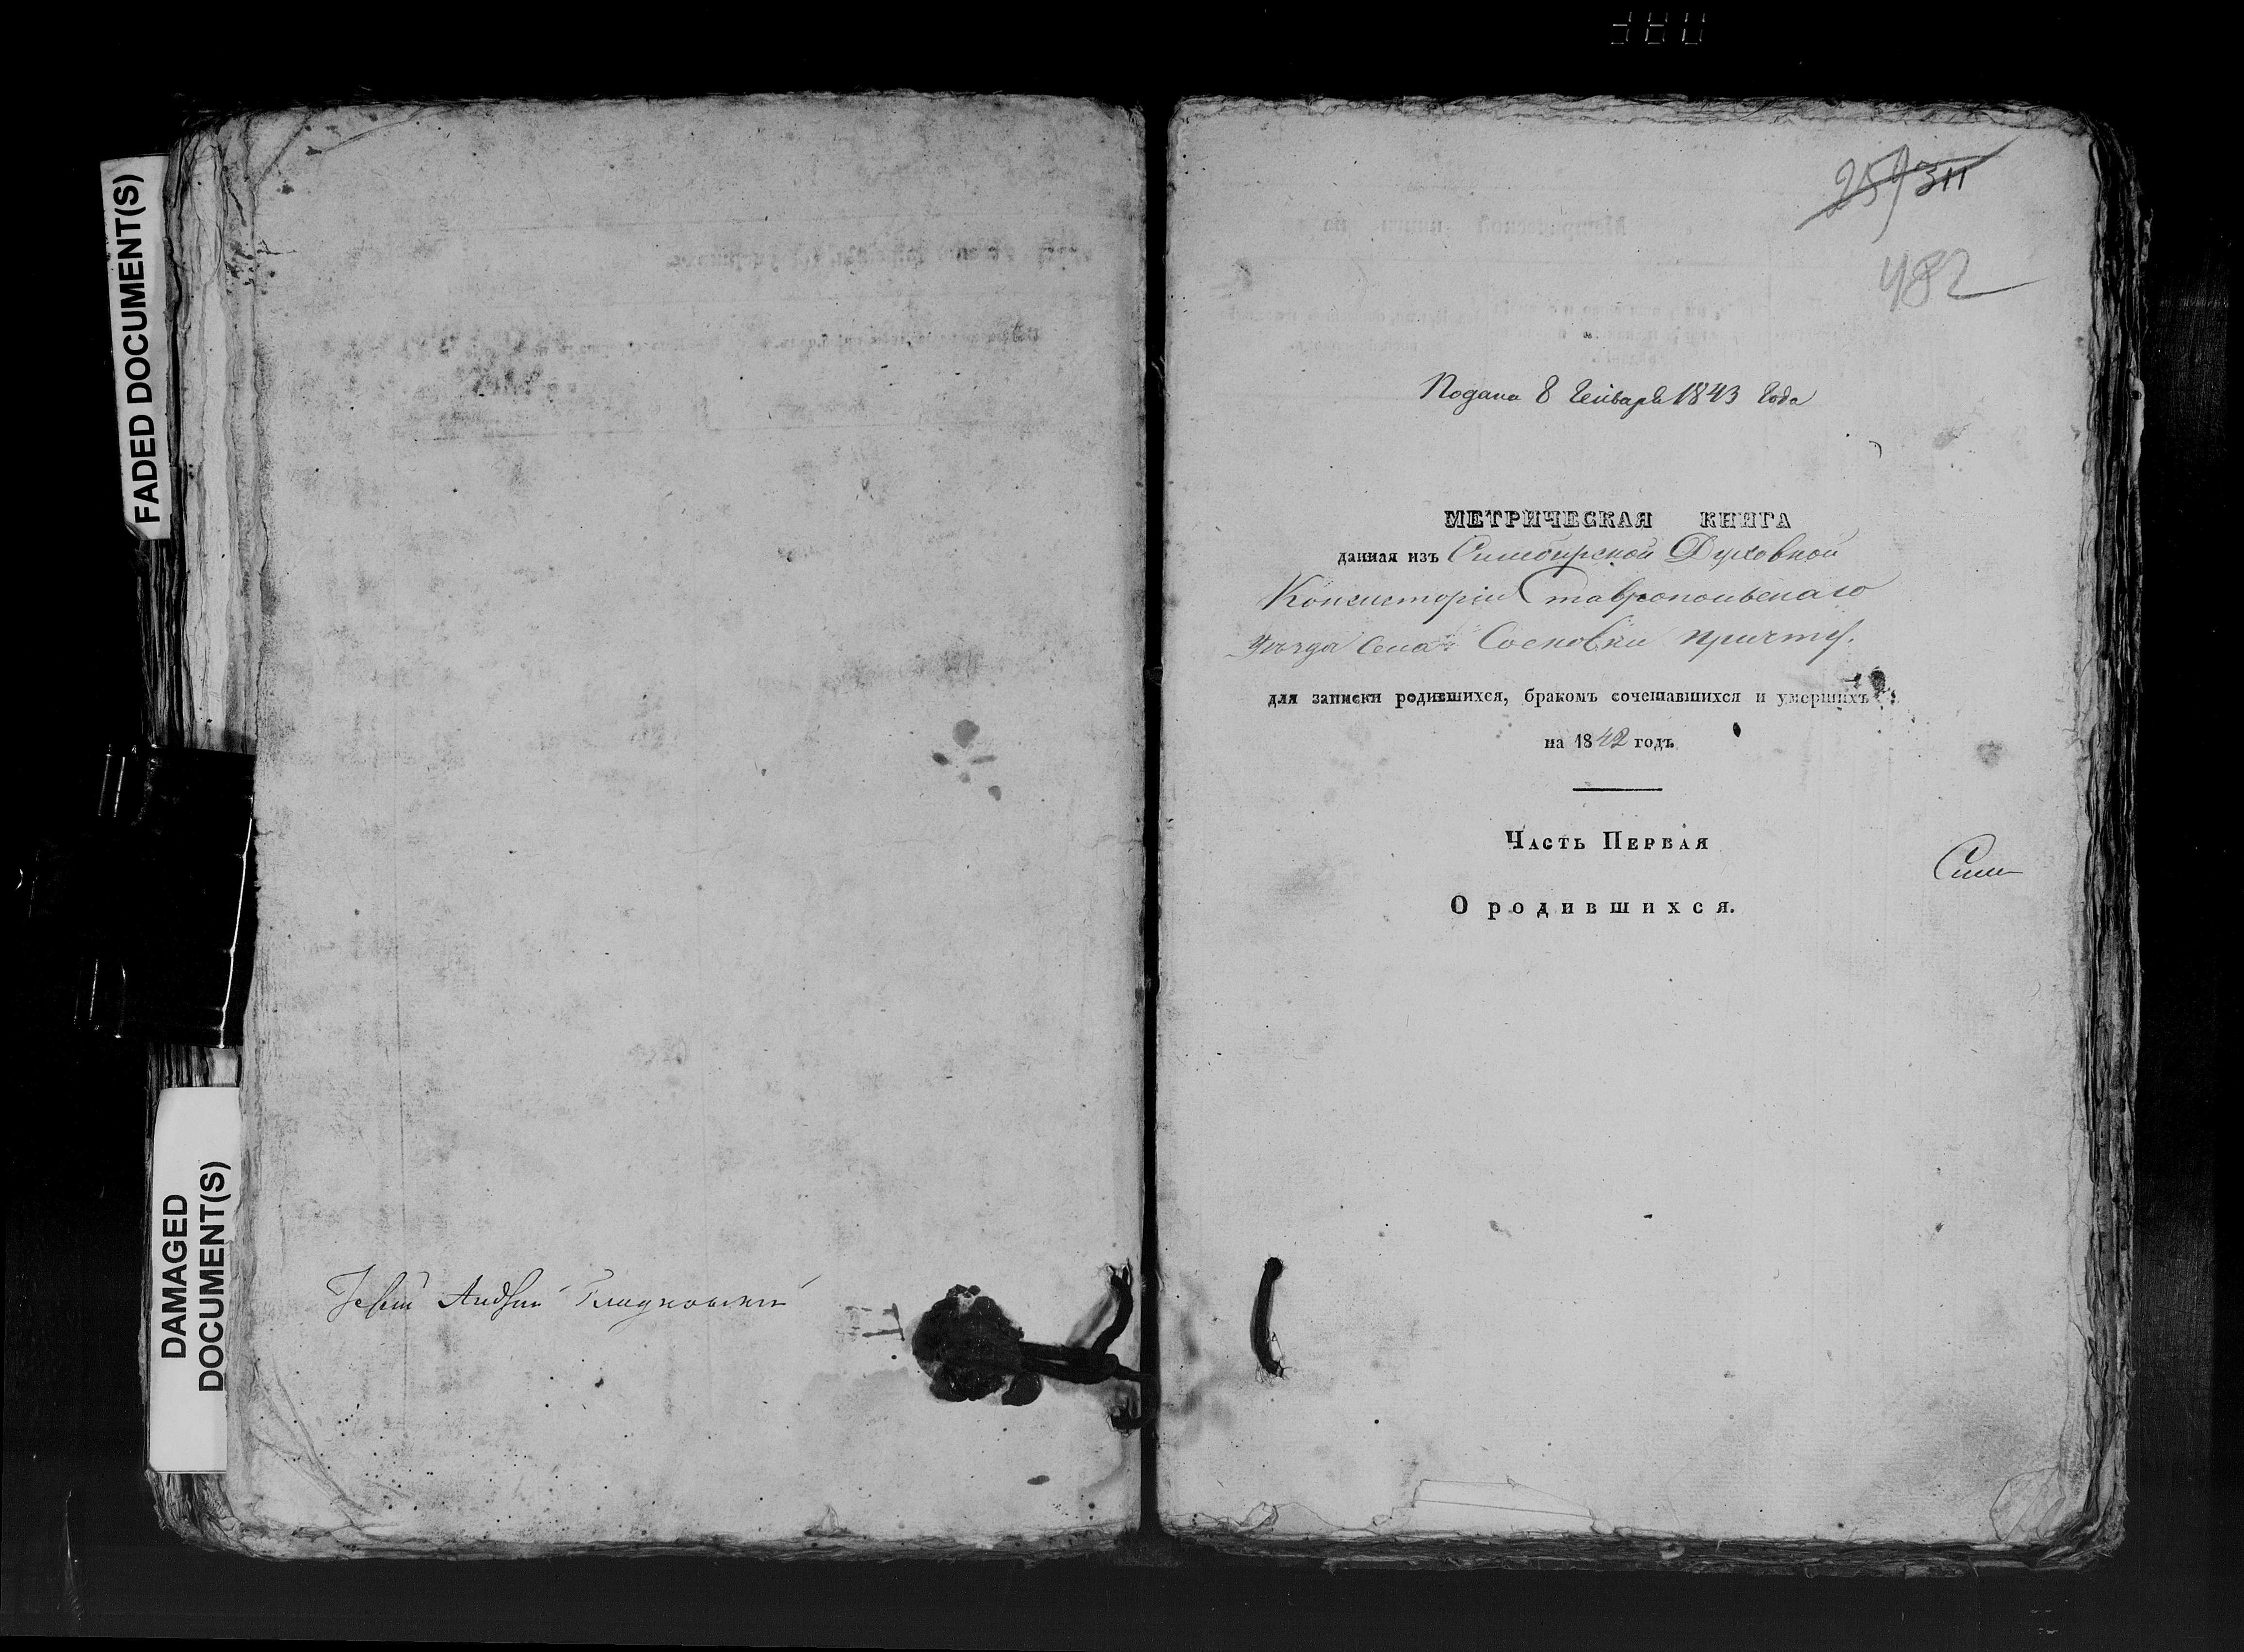 380
FADED DOCUMENT(S)
DAMAGED
DOCUMENT(S)
Іерей Андрей
257 311
482
Подана 8 Генваря 1843 Года
МЕТРИЧЕСКАЯ КНИГА
данная изъ Симбирской Духовной
Консисторіи Ставропольскаго
Уѣзда Села Сосновки причту.
для записки родившихся, бракомъ сочетавшихся и умершихъ
на 1842 годъ
Часть Первая
Сим
О родившихся.